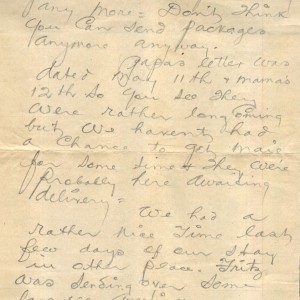 any more = Don't Think
you Can Send packages
anymore anyway.
Papa's letter was
dated May 11th & mama's
12th So you See They
Were rather long coming
but We haven't had
a Chance to get mail
for Some time & They were
Probably here awaiting
delivery =
We had a
rather Nice Time last
few days of our Stay
in other place. Fritz
was Sending over Some